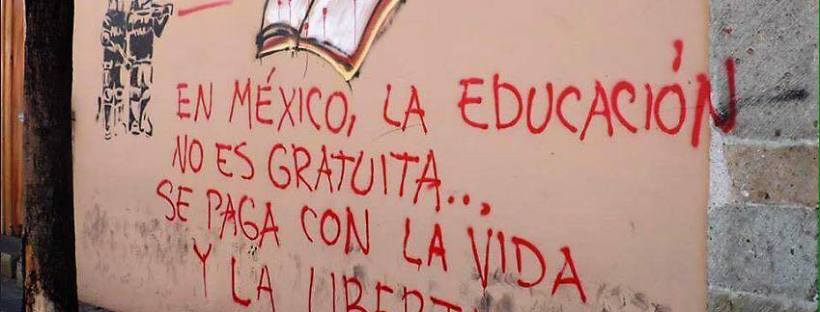 EN MÉXICO, LA EDUCACIÓN
NO ES GRATUITA...,
SE PAGA CON LA VIDA
Y LA